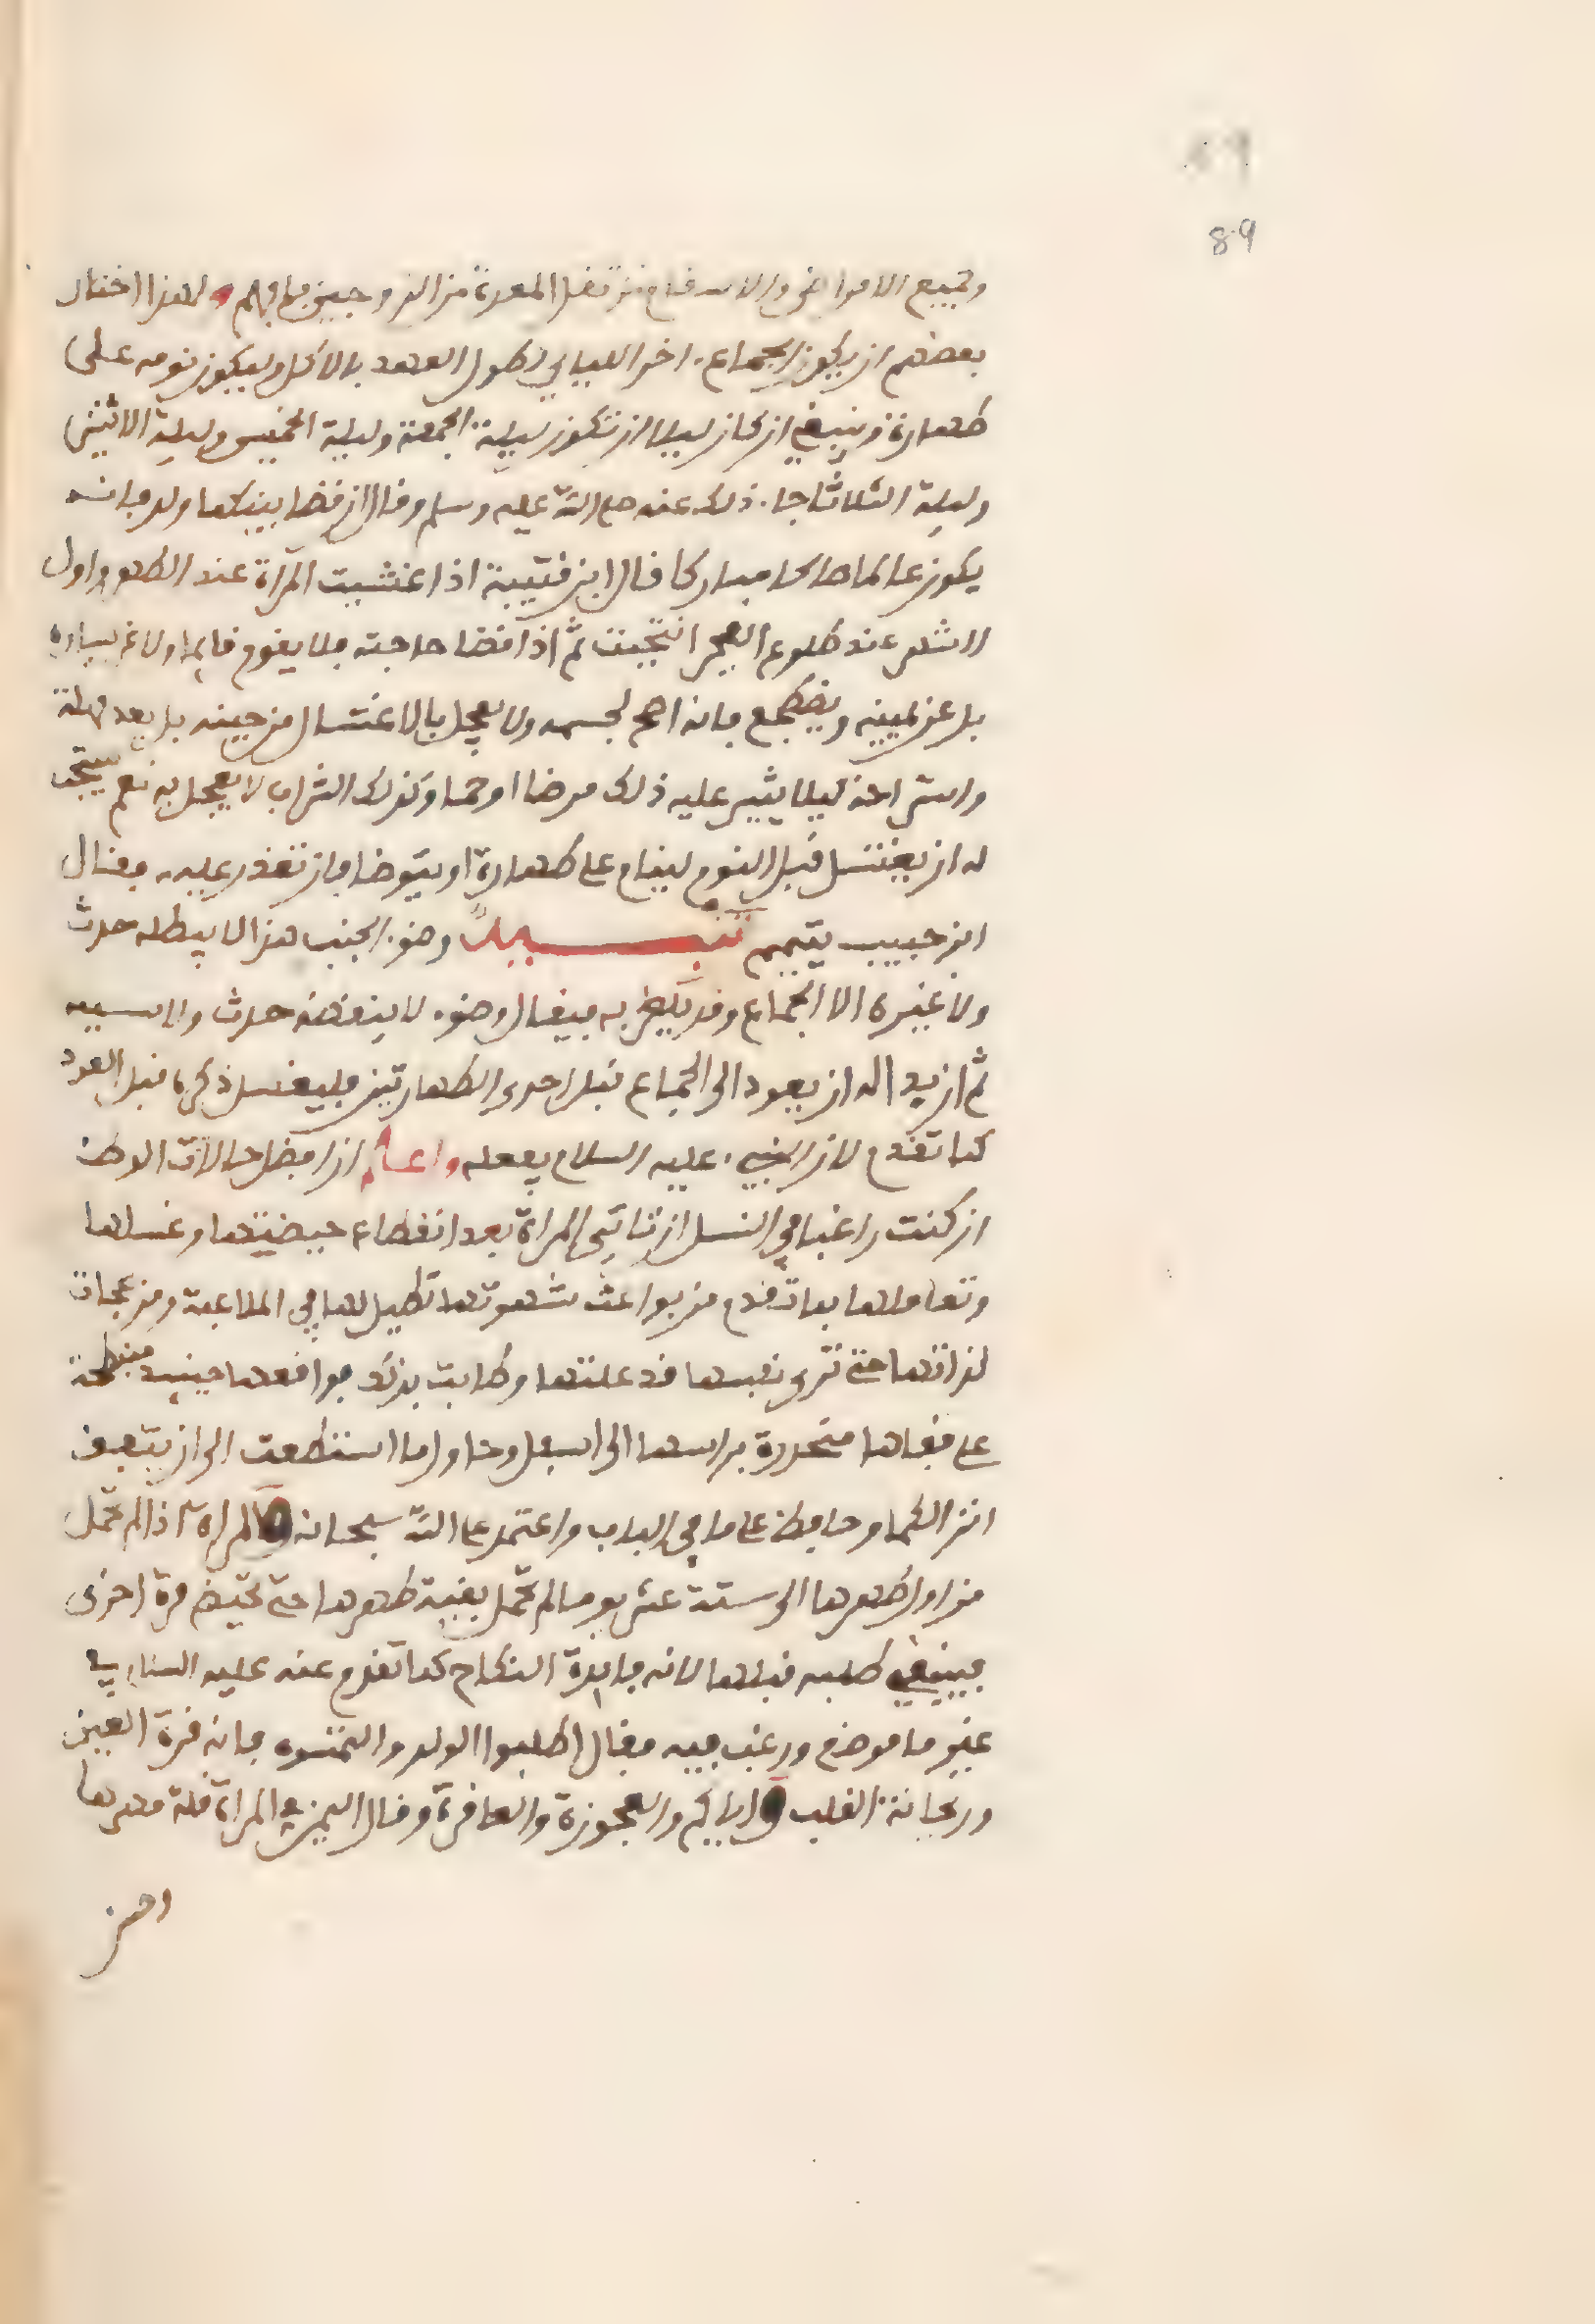 89
وجميع الامراض والاسقام من ثقل المعدة من الزوجين فافهم ولهذا اختار
بعضهم ان يكون الجماع اخر الليالي لطول العهد بالاكل وليكون نومه على
طهارة وينبغي ان كان ليلا ان تكون ليلة الجمعة وليلة الخميس وليلة الاثنين
وليلة الثلاثا جا ذلك عنه صلى الله عليه وسلم وقال ان قضا بينكما ولد فانه
يكون عالما صالحا مباركا قال ابن قتيبة اذا غشيت المرأة عند الطهر واول
الاشهر عند طلوع الفجر انجبت ثم اذا قضا حاجته فلا يقوم قايما ولا عن يساره
بل عن يمينه ويضطجع فانه اصح لجسمه ولا يعجل بالاغتسال من حينه بل بعد مهلة
واستراحة ليلا يثير عليه ذلك مرضا او حما وكذلك الشراب لا يعجل به نعم يستحب
له ان يغتسل قبل النوم لينام على طهارة او يتوضا فان تعذر عليه فقال
ابن حبيب يتيمم تنبيه وضوء الجنب هذا لا يبطله حدث
ولا غيره الا الجماع وقد يلغز به فيقال وضوء لا ينقضه حدث ولا سببه
ثم ان بدا له ان يعود الى الجماع قبل احدى الطهارتين فليغسل ذكره قبل العود
كما تقدم لان النبي عليه السلام يفعله واعلم ان افضل حالات الوطء
ان كنت راغبا في النسل ان تاتي المراة بعد انقطاع حيضتها وغسلها
وتعاملها بما تقدم من بواعث شهوتها تطيل لها في الملاعبة ومن عجات
لذاتها حتى ترى نفسها قد علتها وطابت بذلك فواقعها حينيذ منبطحة
على قفاها منحدرة براسها الى اسفل وحاول ما استطعت الى ان يتفق
انزالكما وحافظ على ما في الباب واعتمد على الله سبحانه والمراة اذا لم تحمل
من اول طهرها الى ستة عشر يوما لم تحمل بقية طهرها حتى تحيض مرة اخرى
فينبغي طلبه قبلها لانه فايدة النكاح كما تقدم عنه عليه السلام في
غير ما موضع ورغب فيه فقال اطلبوا الولد والتمسوه فانه قرة العين
وريحانة القلب واياكم والعجوزة والعاقرة وقال اليمن في المراة قلة مهرها